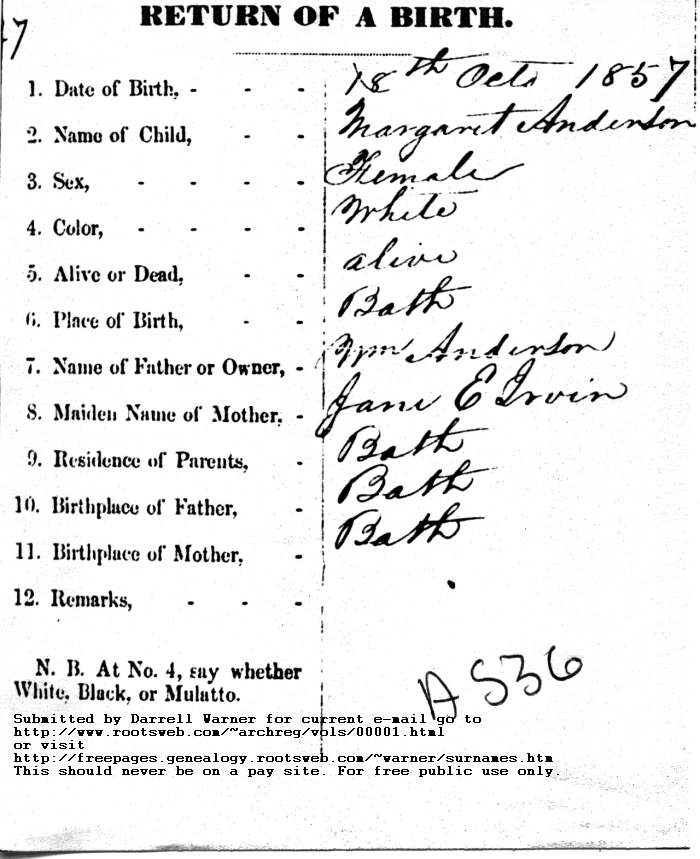 47
RETURN OF A BIRTH.
1. Date of Birth, - - - 18th Octo 1857
2. Name of Child, - - Margaret Anderson
3. Sex, - - - - Female
4. Color, - - - - White
5. Alive or Dead, - - alive
6. Place of Birth, - - Bath
7. Name of Father or Owner, - Wm Anderson
8. Maiden Name of Mother, - Jane E Irvin
9. Residence of Parents, - Bath
10. Birthplace of Father, - Bath
11. Birthplace of Mother, - Bath
12. Remarks, - - -
N. B. At No. 4, say whether
White, Black, or Mulatto.
A536
Submitted by Darrell Warner for current e-mail go to
http://www.rootsweb.com/~archreg/vols/00001.html
or visit
http://freepages.genealogy.rootsweb.com/~warner/surnames.htm
This should never be on a pay site. For free public use only.